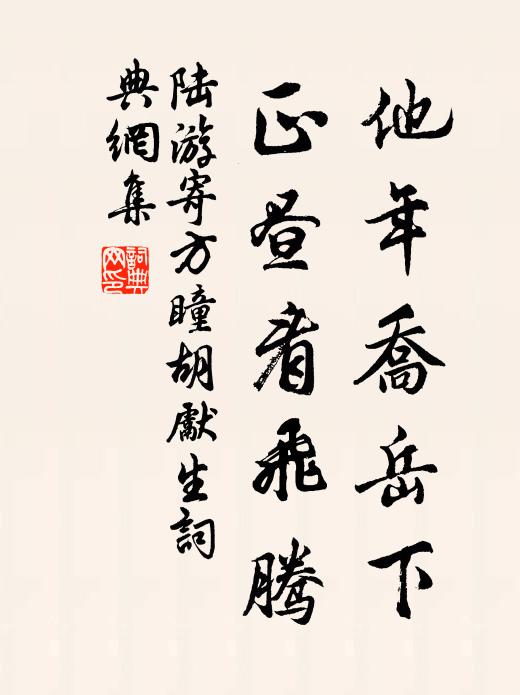 他年喬岳下
正昼看飛騰
陆游寄方瞳胡獻生詞
典網集
詞典
网印